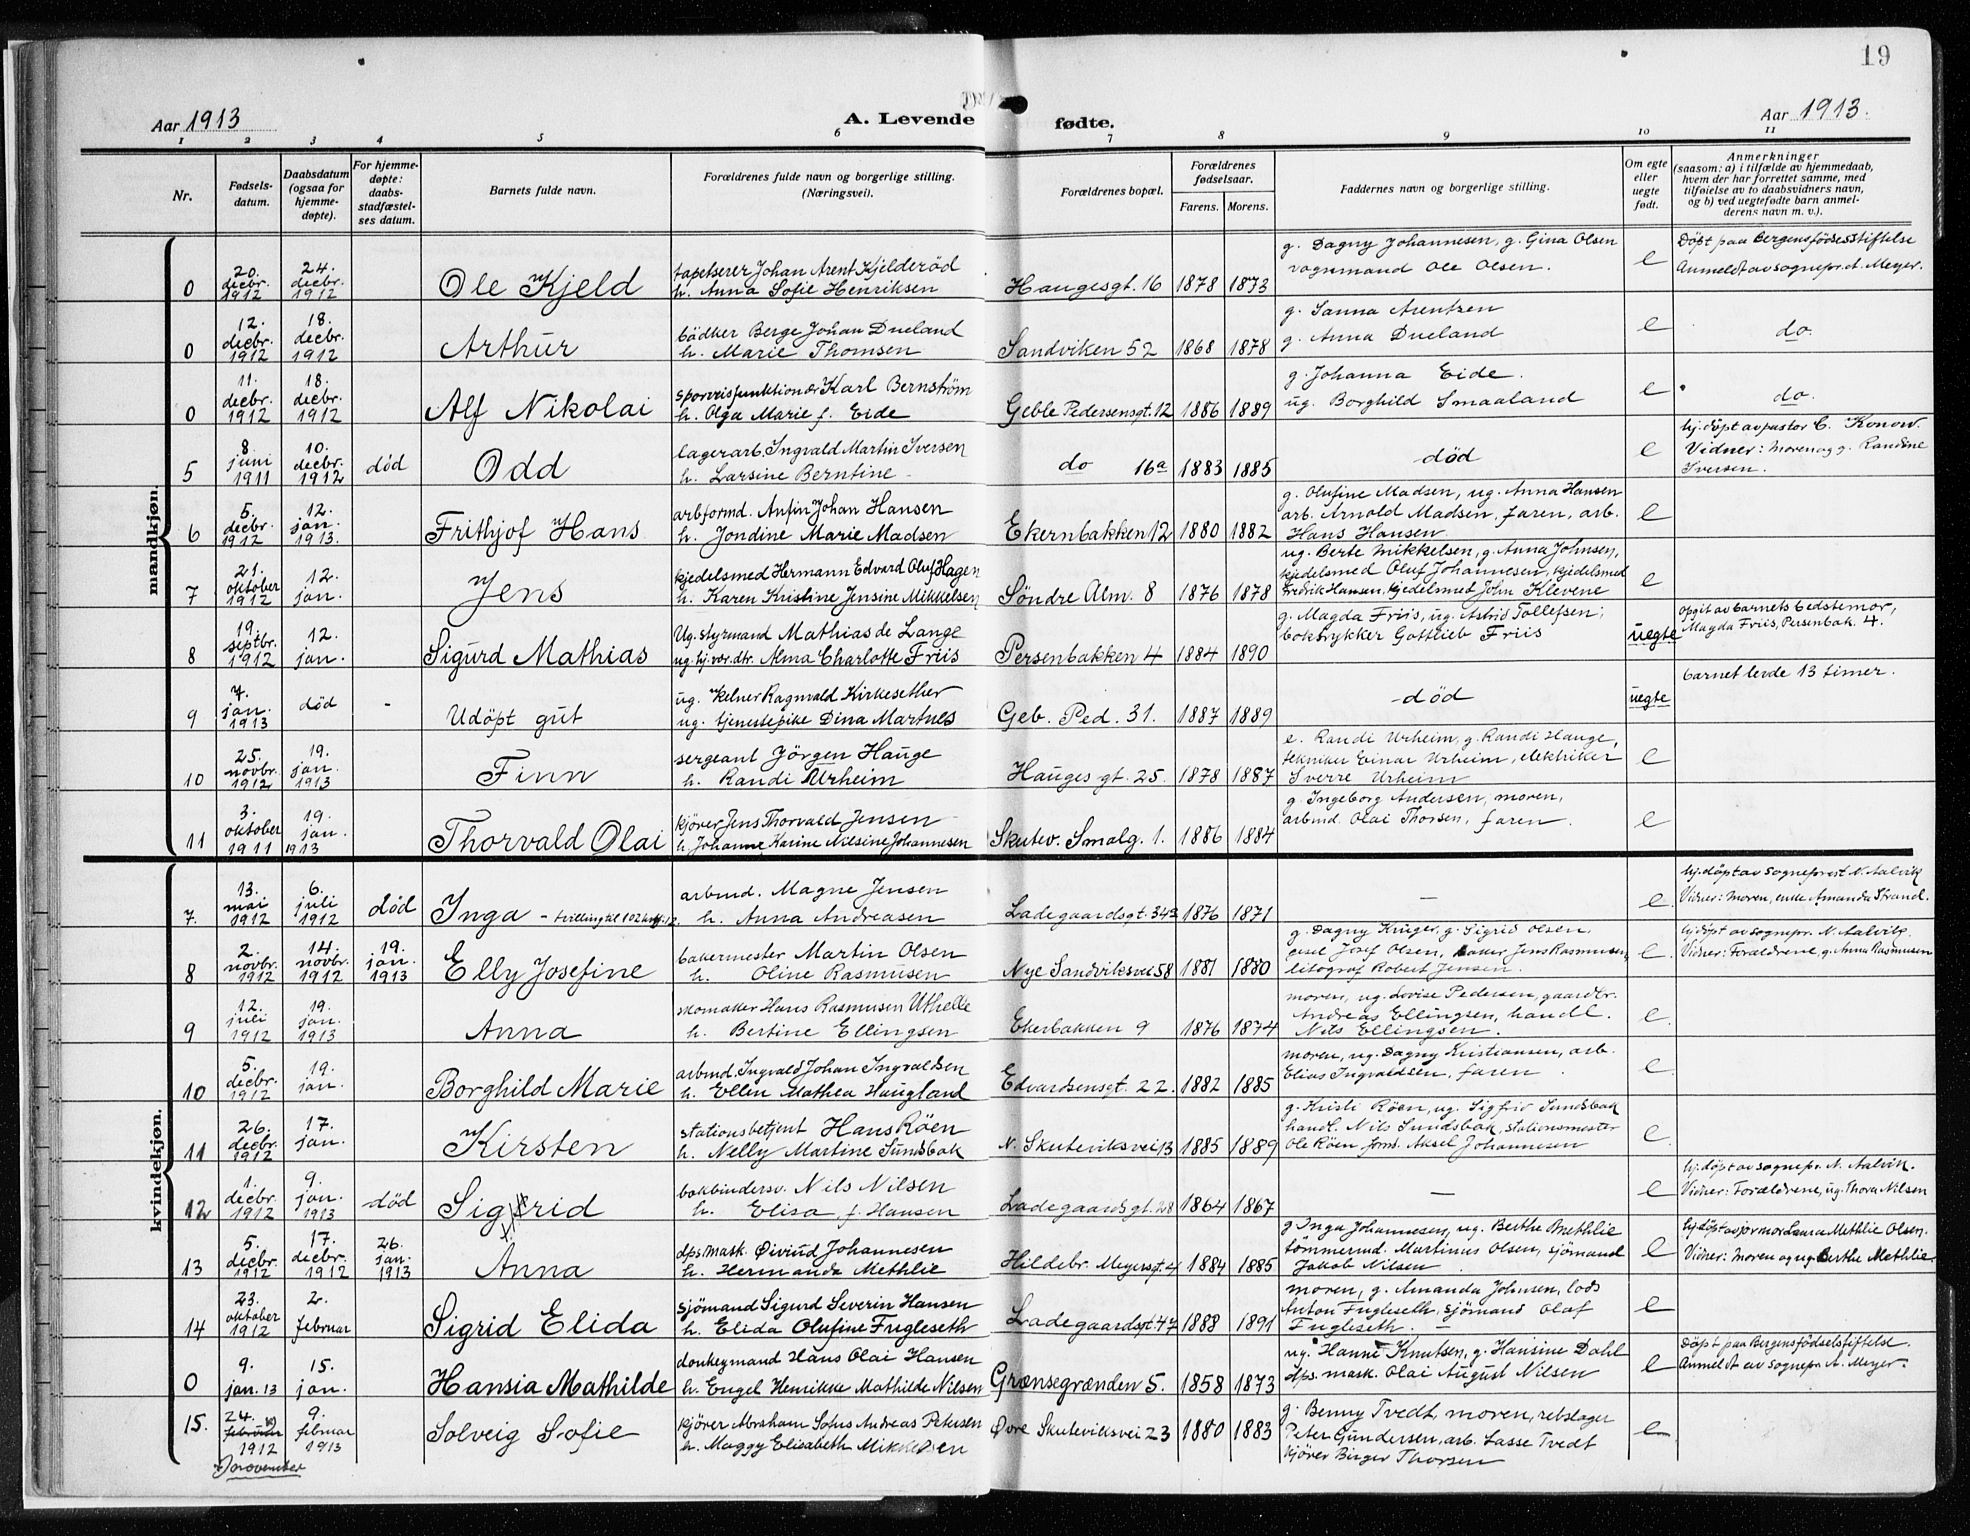 19
Aar 1913
A. Levende fødte.
Aar 1913.
1 2 3 4 5 6 7 8 9 10 11
Nr.
Fødsels-
datum.
Daabsdatum
(ogsaa for
hjemme-
døpte).
For hjemme-
døpte:
daabs-
stadfæstel-
ses datum.
Barnets fulde navn.
Forældrenes fulde navn og borgerlige stilling.
(Næringsvei).
Forældrenes bopæl.
Forældrenes
fødselsaar.
Farens. Morens.
Faddernes navn og borgerlige stilling.
Om egte
eller
uegte
født.
Anmerkninger
(saasom: a) i tilfælde av hjemmedaab,
hvem der har forrettet samme, med
tilføielse av to daabsvidners navn,
og b) ved uegtefødte barn anmel-
derens navn m. v.).
mandkjøn.
0 20. decbr. 1912 24. decbr. 1912 Ole Kjeld
tapetserer Johan Arent Kjelderød
h. Anna Sofie Henriksen
Haugesgt. 16 1878 1873
g. Dagny Johannesen, g. Gina Olsen
vognmand Ole Olsen.
e
Döpt paa Bergens födselsstiftelse
Anmeldt av sognepr. A. Meyer.
0 12. decbr. 1912 18. decbr. 1912 Arthur
bödker Berge Johan Dueland
h. Marie Thomsen
Sandviken 52 1868 1878
g. Sanna Arentzen
g. Anna Dueland
e
do.
0 11. decbr. 1912 18. decbr. 1912 Alf Nikolai
sporveisfunktionær Karl Bernström
h. Olga Marie f. Eide
Geble Pedersensgt. 12 1886 1889
g. Johanna Eide.
ug. Borghild Smaaland
e
do.
5 8. juni 1911 10. decbr. 1912 död Odd
lagerarb. Ingvald Martin Iversen
h. Larsine Berntine
do 16a 1883 1885
död
e
hj. döpt av pastor C. Konow.
Vidner: moren og g. Randine
Iversen.
6 5. decbr. 1912 12. jan. 1913. Frithjof Hans
arbformd. Anfin Johan Hansen
h. Jondine Marie Madsen
Ekernbakken 12 1880 1882
g. Olufine Madsen, ug. Anna Hansen
arb. Arnold Madsen, faren, arb.
Hans Hansen.
e
7 21. oktober 1912 12. jan. Jens
kjedelsmed Hermann Edvard Oluf Hagen
h. Karen Kristine Jensine Mikkelsen
Söndre Alm. 8 1876 1878
ug. Berte Mikkelsen, g. Anna Johnsen,
kjedelsmed Oluf Johannesen, kjedelsmed
Fredrik Hansen, kjedelsmed John Klevene
e
8 19. septbr. 1912 12. jan. Sigurd Mathias
Ug. styrmand Mathias de Lange
ug. hj. vær. dtr. Alma Charlotte Friis
Persenbakken 4 1884 1890
g. Magda Friis, ug. Astrid Tollefsen,
boktrykker Gottlieb Friis
uegte
opgit av barnets bedstemor,
Magda Friis, Persenbak. 4.
9 7. jan. 1913 död - Udöpt gut
ug. kelner Ragnvald Kirkesether
ug. tjenestepike Dina Martnes
Geb. Ped. 31. 1887 1889
död
uegte
barnet levde 13 timer.
10 25. novbr. 1912 19. jan. 1913 Finn
sergeant Jörgen Hauge
h. Randi Urheim
Hauges gt. 25. 1878 1887
e. Randi Urheim, g. Randi Hauge,
tekniker Einar Urheim, elektriker
Sverre Urheim
e
11 3. oktober 1911 19. jan. 1913 Thorvald Olai
kjörer Jens Thorvald Jensen
h. Johanne Karine Nilsine Johannesen
Skutev. Smalg. 1. 1886 1884
g. Ingeborg Andersen, moren,
arbmd. Olai Thorsen, faren.
e
kvindekjøn.
7. 13. mai 1912 6. juli 1912 död Inga - tvilling til 102
arbmd. Magne Jensen
h. Anna Andreasen
Ladegaardsgt. 34a 1876 1871
-
e.
hj. döpt av sogneprest N. Aalvik
Vidner: Moren, enke Amanda Strand.
8 2. novbr. 1912 14. novbr. 1912 19. jan. 1913 Elly Josefine
bakermester Martin Olsen
h. Oline Rasmusen
Nye Sandviksvei 58 1881 1880
g. Dagny Krüger, g. Sigrid Olsen,
Josef Olsen, baker Jens Rasmusen,
litograf Robert Jensen.
e.
hj. döpt av sognepr. N. Aalvik.
Vidner: Forældrene, g. Anna Rasmusen
9 12. juli 1912 19. jan. 1913 Anna
skomaker Hans Rasmusen Uthelle
h. Bertine Ellingsen
Ekerbakken 9 1876 1874
moren, ug. Lovise Pedersen, gaardbr.
Andreas Ellingsen, handl.
Nils Ellingsen.
e.
10 5. decbr. 1912 19. jan. Borghild Marie
arbmd. Ingvald Johan Ingvaldsen
h. Ellen Mathea Haugland
Edvardsensgt. 22. 1882 1885
moren, ug. Dagny Kristiansen, arb.
Elias Ingvaldsen, faren.
e
11 26. decbr. 1912 17. jan. Kirsten
stationsbetjent Hans Röen
h. Nelly Martine Sundsbak
N. Skuteviksvei 13 1885 1889
g. Kristi Röen, ug. Sigfrid Sundsbak
handl. Nils Sundsbak, stationsmester
Ole Röen, Aksel Johannesen
e.
12 1. decbr. 1912 9. jan. 1913 död Sigfrid
bokbindersv. Nils Nilsen
h. Elisa f. Hansen
Ladegaardsgt. 28 1864 1867
-
e
hj. döpt av sognepr. N. Aalvik.
Vidner: Forældrene, ug. Thora Nilsen
13 5. decbr. 1912 17. decbr. 1912 26. jan. 1913 Anna
dps mask. Øivind Johannesen
h. Hermanda Methlie
Hildebr. Meyersgt. 4 1884 1885
g. Inga Johannesen, ug. Berthe Methlie
tömmermd. Martinus Olsen, sjömand
Jakob Nilsen
e
hj. döpt av jormor Laura Methlie Olsen.
Vidner: Moren og ug. Berthe Methlie.
14 23. oktober 1912 2. februar Sigrid Elida
sjömand Sigurd Severin Hansen
h. Elida Olufine Fugleseth
Ladegaardsgt 47 1888 1891
moren, g. Amanda Johnsen, lods
Anton Fugleseth, sjömand Olaf
Fugleseth.
e
0 9. jan. 13 15. jan. Hansia Mathilde
donkeymand Hans Olai Hansen
h. Engel Henrikke Mathilde Nilsen
Grænsegrænden 5. 1858 1873
ug. Hanne Knutsen, g. Hansine Dahl
dps. mask. Olai August Nilsen
e
Döpt paa Bergens födselsstiftelse.
Anmeldt av sognepr. A. Meyer.
15. 24. februar 1912 9. februar 1913 Solveig Sofie
kjörer Abraham Sofus Andreas Petersen
h. Maggy Elisabeth Mikkelsen
Øvre Skuteviksvei 23 1880 1883
g. Benny Tvedt, moren, rebslager
Peter Gundersen, arb. Lasse Tvedt
kjörer Birger Thorsen
e
november